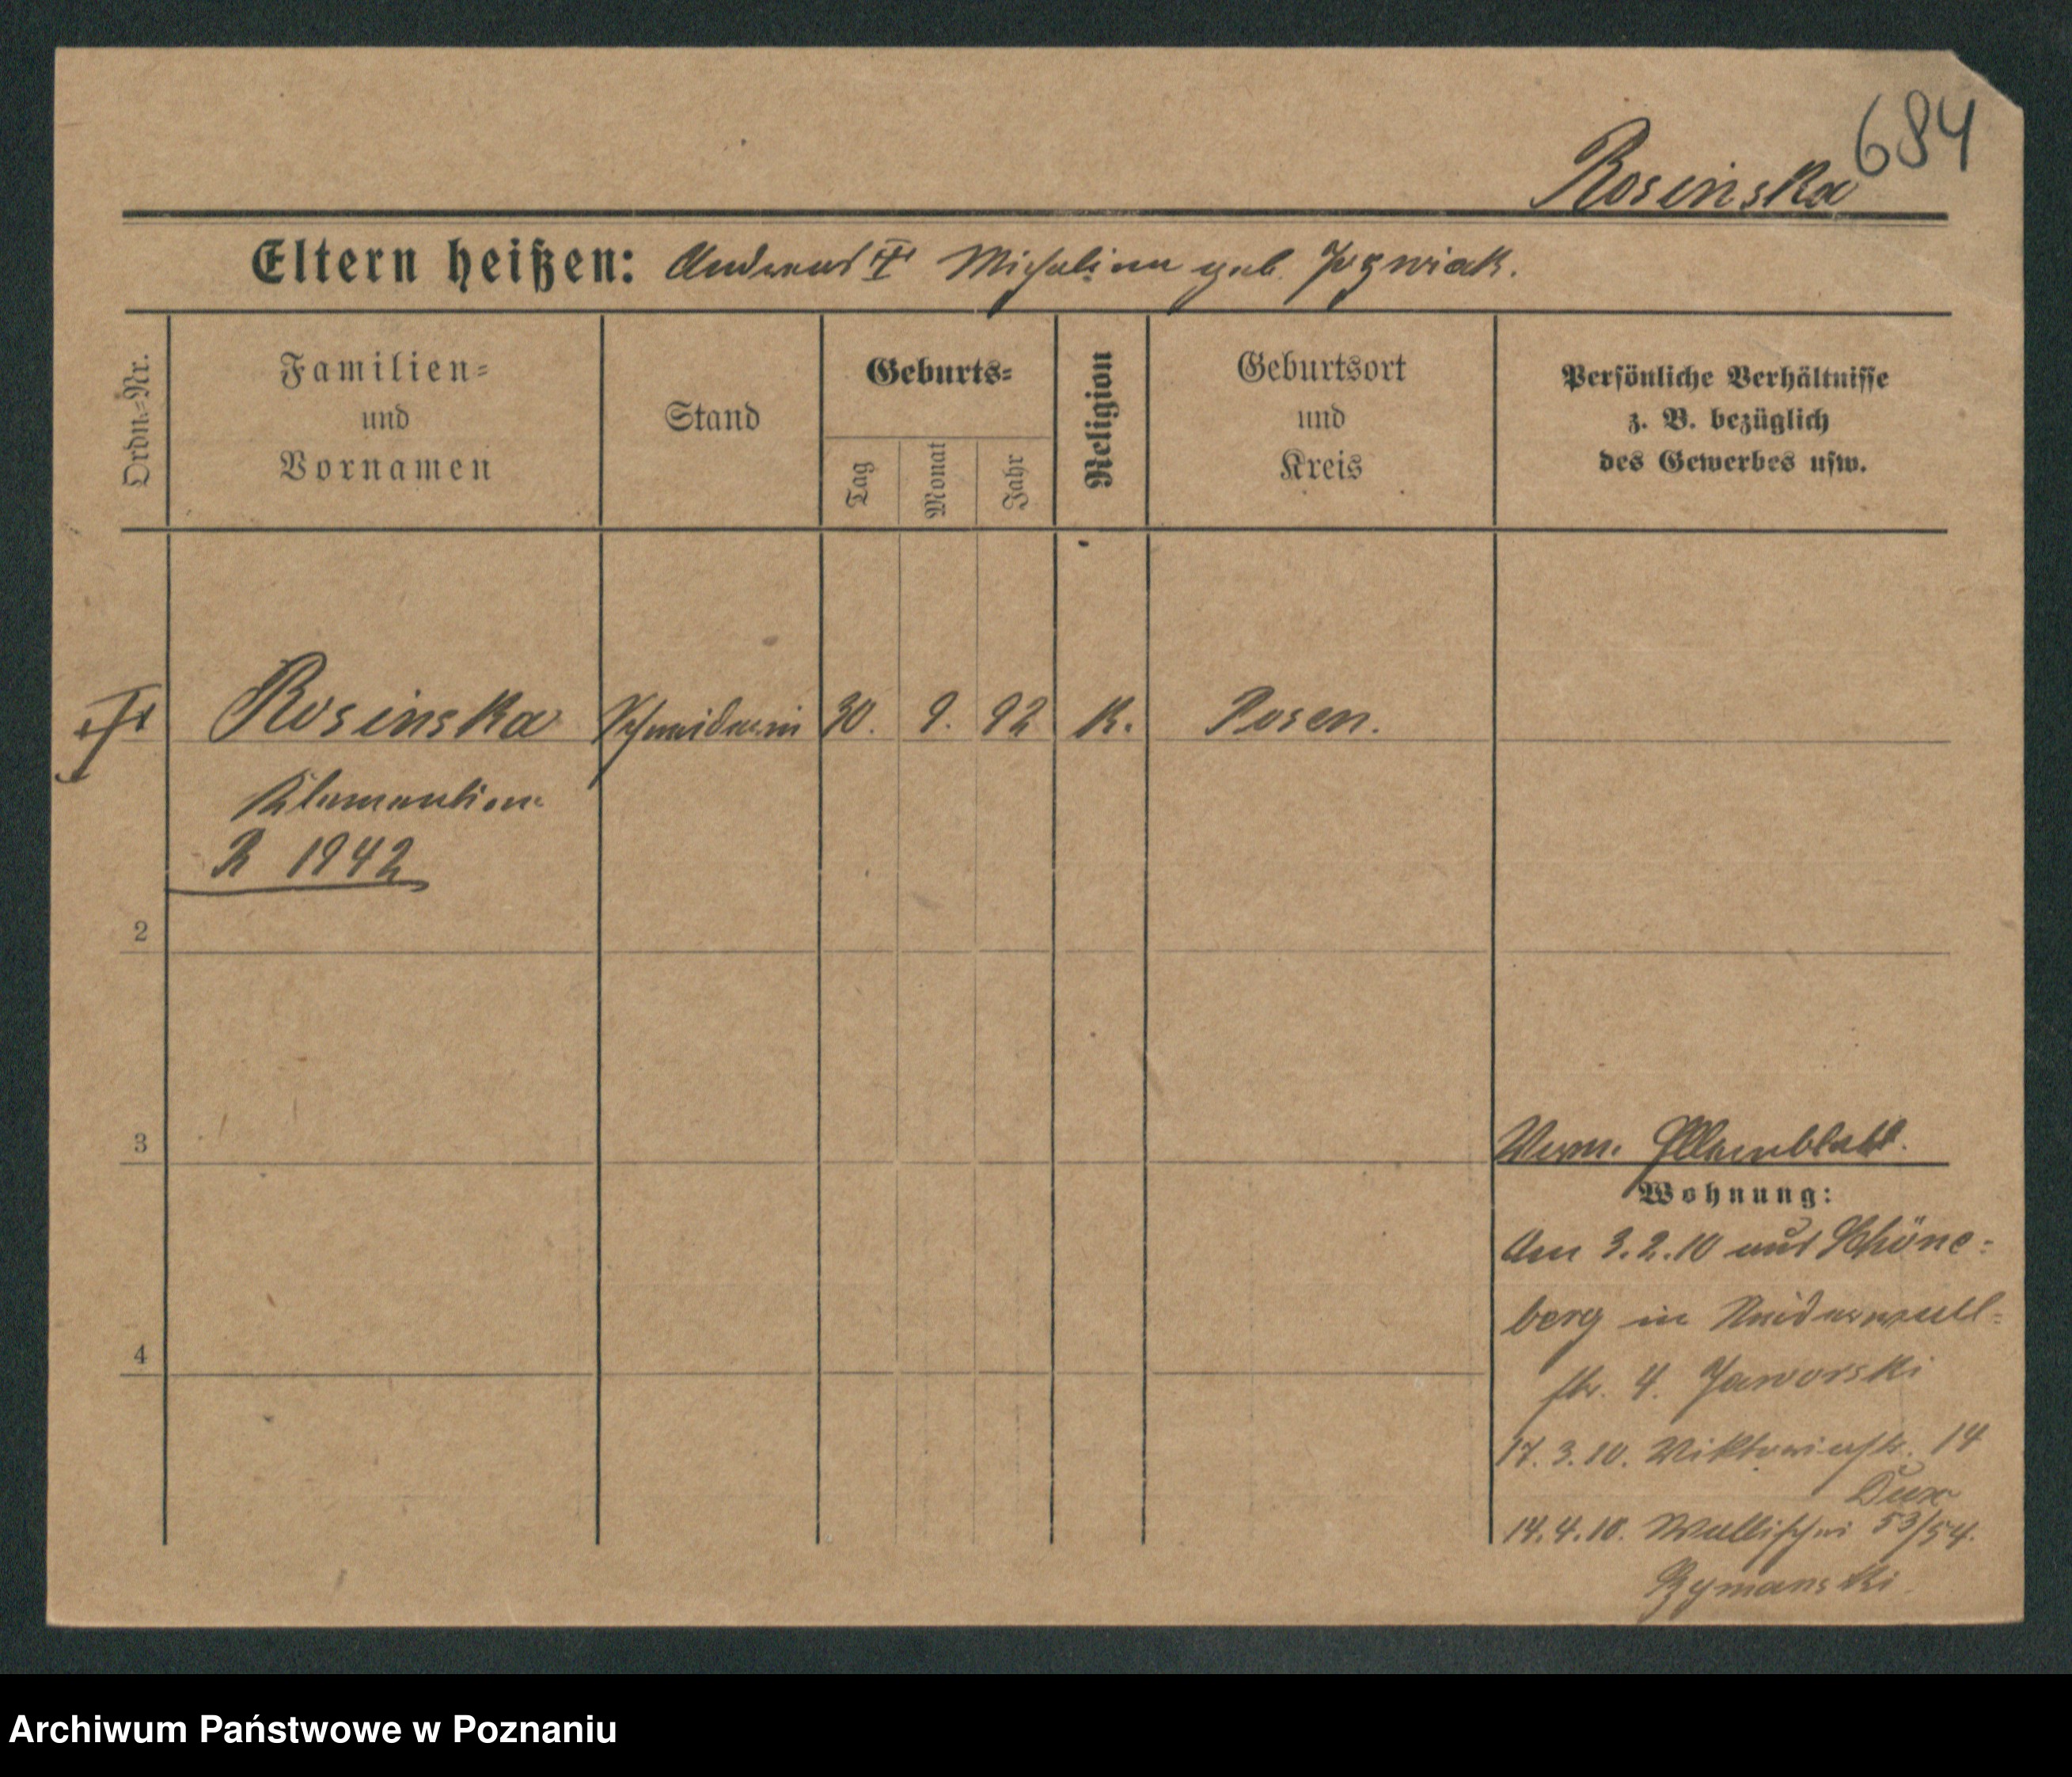 684
Rosinska
Eltern heißen: Andreas Michalina geb. Jozwiak.
Ordn.-Nr.
Familien-
und
Vornamen
Stand
Geburts-
Tag
Monat
Jahr
Religion
Geburtsort
und
Kreis
Persönliche Verhältnisse
z. B. bezüglich
des Gewerbes usw.
Rosinska Schneiderin 30. 9. 92 K. Posen.
Klementine
R 1942
2
3
Verm. Elternblatt.
Wohnung:
Am 3.2.10 aus Schöne-
berg in Naiderwall-
4
str. 4. Jaworski
17.3.10. Viktoriastr. 14
Dux
14.4.10. Wallischei 53/54.
Rymanski
Archiwum Państwowe w Poznaniu